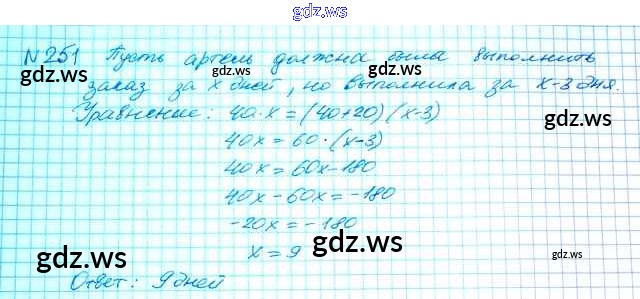 gdz.ws
№251 Пусть артель должна была выполнить
gdz.ws gdz.ws
заказ за x дней, но выполнила за x-3 дня.
Уравнение: 40·x=(40+20)(x-3)
gdz.ws
40x=60·(x-3)
gdz.ws
40x=60x-180
40x-60x=-180
-20x=-180
gdz.ws
x=9
gdz.ws
gdz.ws
Ответ: 9 дней